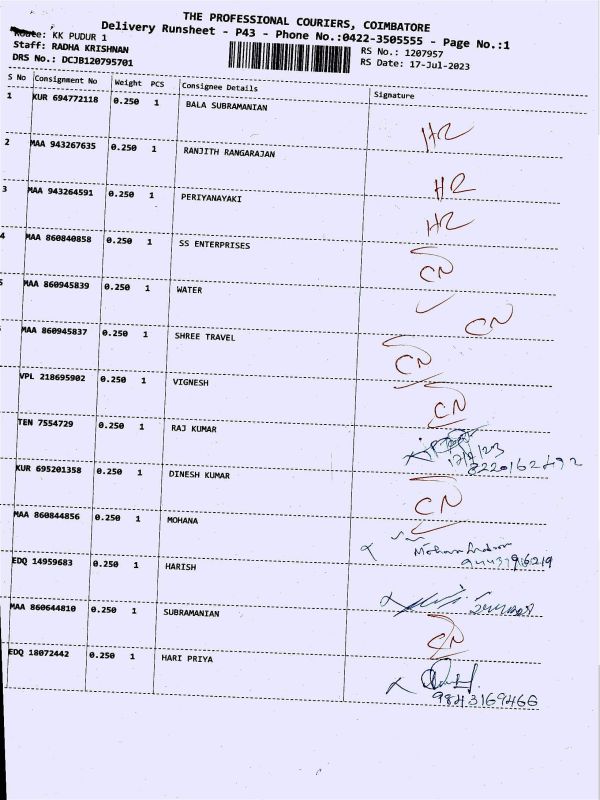 THE PROFESSIONAL COURIERS, COIMBATORE
Delivery Runsheet - P43 - Phone No.:0422-3505555 - Page No.:1
Route: KK PUDUR 1
Staff: RADHA KRISHNAN
DRS No.: DCJB120795701
RS No.: 1207957
RS Date: 17-Jul-2023
S No Consignment No Weight PCS Consignee Details Signature
1 KUR 694772118 0.250 1 BALA SUBRAMANIAN HR
2 MAA 943267635 0.250 1 RANJITH RANGARAJAN HR
3 MAA 943264591 0.250 1 PERIYANAYAKI HR
4 MAA 860840858 0.250 1 SS ENTERPRISES CN
5 MAA 860945839 0.250 1 WATER CN
MAA 860945837 0.250 1 SHREE TRAVEL CN
VPL 218695902 0.250 1 VIGNESH CN
TEN 7554729 0.250 1 RAJ KUMAR
KUR 695201358 0.250 1 DINESH KUMAR CN
MAA 860844856 0.250 1 MOHANA
EDQ 14959683 0.250 1 HARISH
MAA 860644810 0.250 1 SUBRAMANIAN CN
EDQ 18072442 0.250 1 HARI PRIYA
9843169466